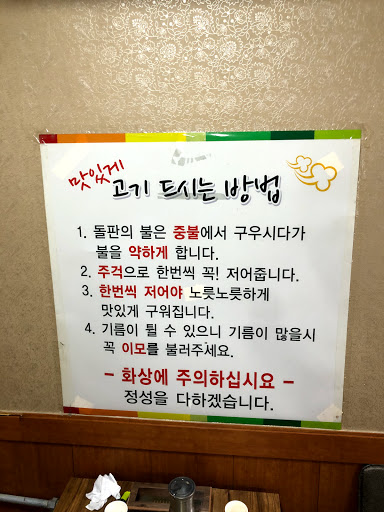 맛있게
고기 드시는 방법
1. 돌판의 불은 중불에서 구우시다가
불을 약하게 합니다.
2. 주걱으로 한번씩 꼭! 저어줍니다.
3. 한번씩 저어야 노릇노릇하게
맛있게 구워집니다.
4. 기름이 튈 수 있으니 기름이 많을시
꼭 이모를 불러주세요.
- 화상에 주의하십시요 -
정성을 다하겠습니다.